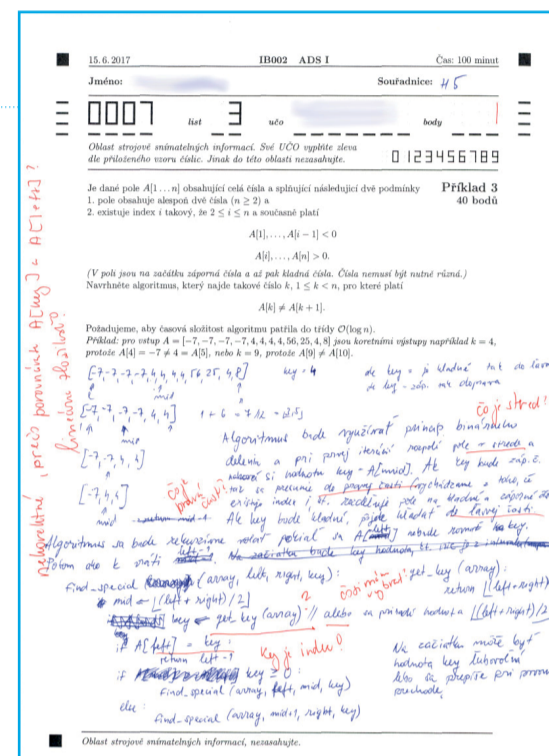 15. 6. 2017 IB002 ADS I Čas: 100 minut
Jméno: Souřadnice: H5
0007 list 3 učo body 1
Oblast strojově snímatelných informací. Své UČO vyplňte zleva
dle přiloženého vzoru číslic. Jinak do této oblasti nezasahujte.
0123456789
Je dané pole A[1...n] obsahující celá čísla a splňující následující dvě podmínky
Příklad 3
1. pole obsahuje alespoň dvě čísla (n ≥ 2) a
40 bodů
2. existuje index i takový, že 2 ≤ i ≤ n a současně platí
A[1], ..., A[i − 1] < 0
A[i], ..., A[n] > 0.
(V poli jsou na začátku záporná čísla a až pak kladná čísla. Čísla nemusí být nutně různá.)
Navrhněte algoritmus, který najde takové číslo k, 1 ≤ k < n, pro které platí
A[k] ≠ A[k + 1].
Požadujeme, aby časová složitost algoritmu patřila do třídy O(log n).
Příklad: pro vstup A = [−7, −7, −7, −7, 4, 4, 4, 4, 56, 25, 4, 8] jsou korektními výstupy například k = 4,
protože A[4] = −7 ≠ 4 = A[5], nebo k = 9, protože A[9] ≠ A[10].
key = 4
ak key = je kladné tak do ľava
ak key - záp. tak doprava
mid
čo je stred?
[-7, -7, -7, -7, 4, 4]
mid
Algoritmus bude využívať princip binárneho
[-7, -7, 4, 4]
delenia a pri prvej iterácii rozpolí pole = stred a
si hodnotu key = A[mid]. Ak key bude záp. č.
[-7, 4, 4]
čo je pravá časť?
mid
existuje index i,
Ak key bude kladný, pôjde hľadať do ľavej časti.
Algoritmus sa bude rekurzívne volať pokiaľ sa A[left] nebude rovnať key.
Potom ako k vráti left-1.
find_special (array, left, right, key):
get_key (array):
return ⌊(left+right)/2⌋
mid ← ⌊(left + right)/2⌋
key ← get_key (array) // alebo sa priradí hodnota ⌊(left+right)/2⌋
if A[left] = key:
return left-1
Key je index?
if key ≥ 0:
find_special (array, left, mid, key)
else:
find_special (array, mid+1, right, key)
Na začiatku môže byť
hodnota key ľubovoľná
lebo sa prepíše pri prvom
prechode.
nekorektné, prečo porovnávať A[key] = A[left]?
lineárna zložitosť?
Oblast strojově snímatelných informací, nezasahujte.